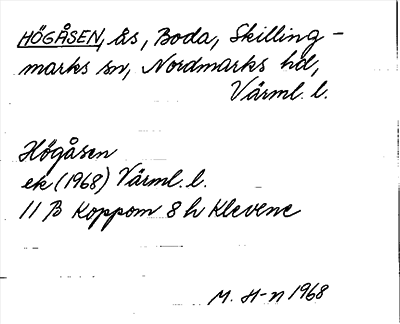 HÖGÅSEN, ås, Boda, Skilling-
marks sn, Nordmarks hd,
Värml. l.
Högåsen
ek (1968) Värml. l.
11 B Koppom 8 h Klevene
M. H-n 1968